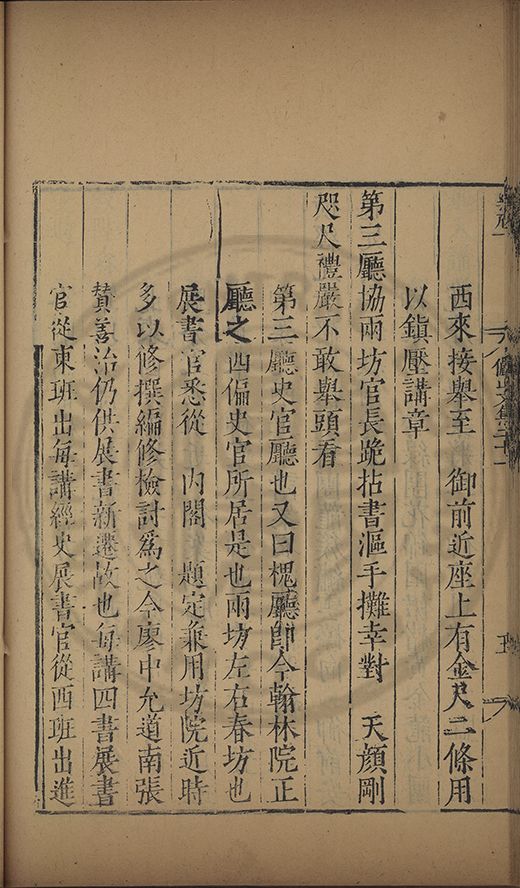 西來接舉至 御前近座上有金尺二條用
以鎭壓講章
第三廳協兩坊官長跪拈書漚手攤幸對 天顔剛
咫尺禮嚴不敢舉頭看
第三廳史官廳也又曰槐廳卽今翰林院正
廳之西偏史官所居是也兩坊左右春坊也
展書官悉從 內閣 題定兼用坊院近時
多以修撰編修檢討爲之今廖中允道南張
贊善治仍供展書新遷故也每講四書展書
官從東班出每講經史展書官從西班出進